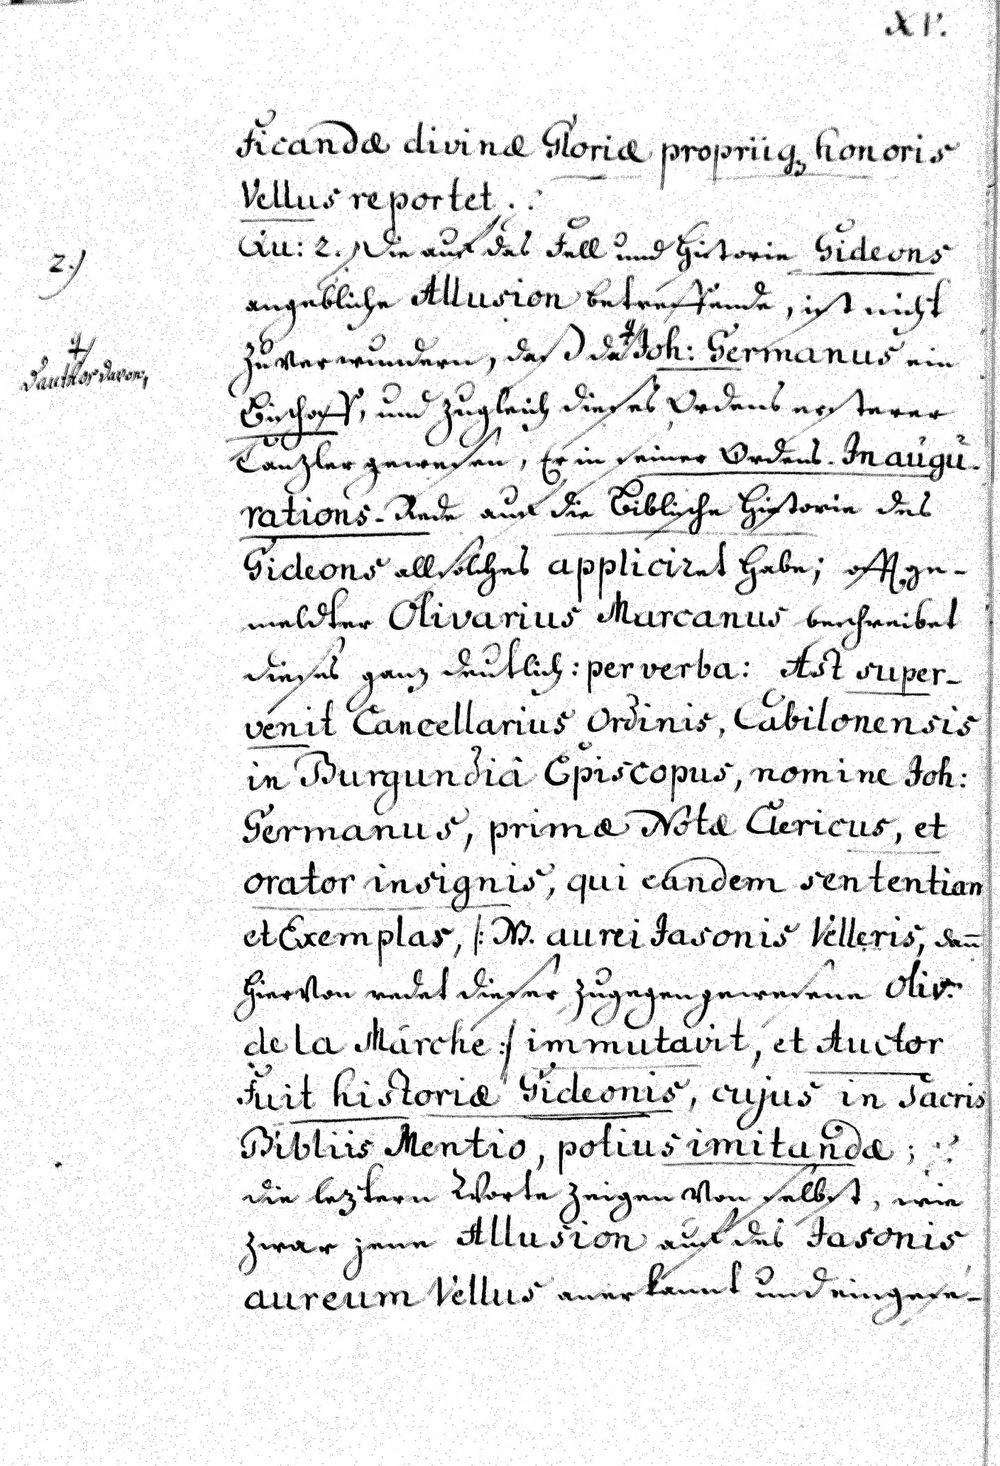 XV.
ficandæ divinæ Gloriæ propriiq₃ honoris
Vellus reportet. .∵
2.)
Qu: 2. Die auf das Fell und Historie Gideons
angebliche Allusion betreffende, ist nicht
zu verwundern, daß da ⸸ Joh: Germanus ein
⸸
d'author davon,
Bischoff, und zugleich dieses Ordens ersterer
Canzler gewesen, Er in seiner Ordens-Inaugu-
rations-Rede auf die Biblische Historie des
Gideons all solches appliciret habe; offtge-
meldter Olivarius Marcanus beschreibet
dieses ganz deutlich: per verba: Ast super-
venit Cancellarius Ordinis, Cabilonensis
in Burgundiâ Episcopus, nomine Joh:
Germanus, primæ Notæ Clericus, et
orator insignis, qui eandem sententiam
et Exemplas, /: NB. aurei Jasonis Velleris, dan̄
hiervon redet dieser zugegengewesene Oliv:
de la Marche :/ immutavit, et Auctor
fuit historiæ Gideonis, cujus in Sacris
Bibliis Mentio, potius imitandæ; ∵
die leztern Worte zeigen von selbst, wie
zwar jene Allusion auf des Jasonis
aureum Vellus anerkannt und eingese-